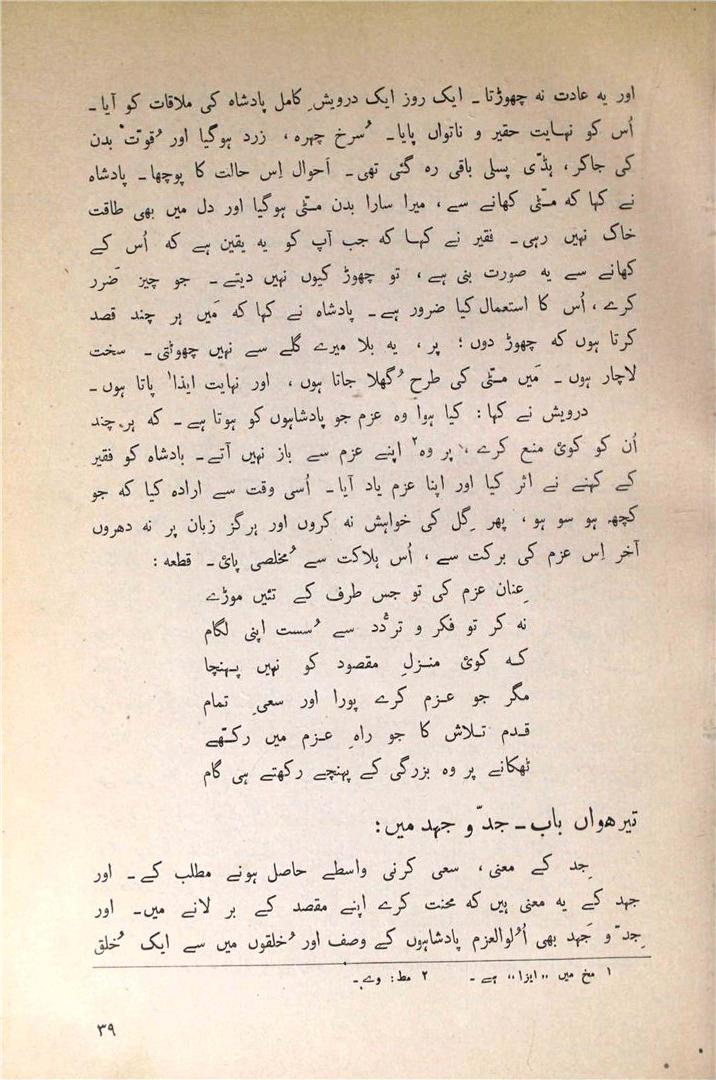 اور یہ عادت نہ چھوڑتا ۔ ایک روز ایک درویشِ کامل پادشاہ کی ملاقات کو آیا ۔
اُس کو نہایت حقیر و ناتواں پایا ۔ سُرخ چہرہ ، زرد ہوگیا اور قُوّتِ بدن
کی جاکر ، ہڈّی پسلی باقی رہ گئی تھی ۔ اَحوال اِس حالت کا پوچھا ۔ پادشاہ
نے کہا کہ مٹّی کھانے سے ، میرا سارا بدن مٹّی ہوگیا اور دل میں بھی طاقت
خاک نہیں رہی ۔ فقیر نے کہا کہ جب آپ کو یہ یقین ہے کہ اُس کے
کھانے سے یہ صورت بنی ہے ، تو چھوڑ کیوں نہیں دیتے ۔ جو چیز ضَرر
کرے ، اُس کا استعمال کیا ضرور ہے ۔ پادشاہ نے کہا کہ مَیں ہر چند قصد
کرتا ہوں کہ چھوڑ دوں ؛ پر ، یہ بلا میرے گلے سے نہیں چھوٹتی ۔ سخت
لاچار ہوں ۔ مَیں مٹّی کی طرح گُھلا جاتا ہوں ، اور نہایت ایذا۱ پاتا ہوں ۔
درویش نے کہا : کیا ہوا وہ عزم جو پادشاہوں کو ہوتا ہے ۔ کہ ہر چند
اُن کو کوئی منع کرے ، پر وہ۲ اپنے عزم سے باز نہیں آتے ۔ بادشاہ کو فقیر
کے کہنے نے اثر کیا اور اپنا عزم یاد آیا ۔ اُسی وقت سے ارادہ کیا کہ جو
کچھ ہو سو ہو ، پھر گِل کی خواہش نہ کروں اور ہرگز زبان پر نہ دھروں
آخر اِس عزم کی برکت سے ، اُس ہلاکت سے مُخلصی پائی ۔ قطعہ :
عِنان عزم کی تو جس طرف کے تئیں موڑے
نہ کر تو فکر و تردُّد سے سُست اپنی لگام
کہ کوئی منزلِ مقصود کو نہیں پہنچا
مگر جو عزم کرے پورا اور سعیِ تمام
قدم تلاش کا جو راہِ عزم میں رکھّے
ٹھکانے پر وہ بزرگی کے پہنچے رکھتے ہی گام
تیرھواں باب ۔ جدّ و جہد میں :
جِد کے معنی ، سعی کرنی واسطے حاصل ہونے مطلب کے ۔ اور
جہد کے یہ معنی ہیں کہ محنت کرے اپنے مقصد کے بر لانے میں ۔ اور
جِدّ و جَہد بھی اُولوالعزم پادشاہوں کے وصف اور خُلقوں میں سے ایک خُلق
۱ مخ میں ,,ایزا،، ہے ۔ ۲ مط : وے ۔
۳۹